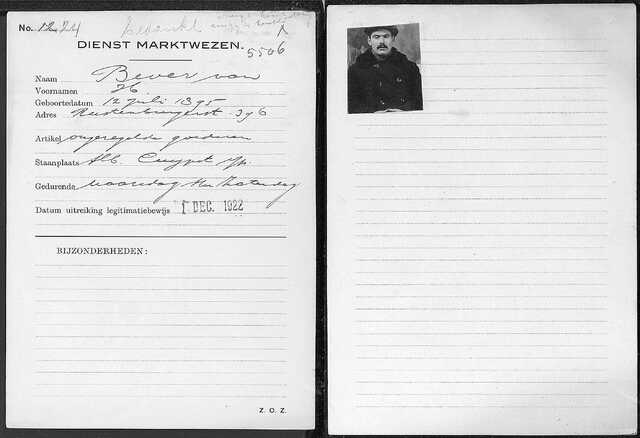 No.
DIENST MARKTWEZEN.
5506
Naam Bever van
Voornamen H.
Geboortedatum 12 Juli 1895
Adres Rustenburgerst. 396
Artikel ongeregelde goederen
Staanplaats Alb. Cuypst
Gedurende Maandag t/m Zaterdag
Datum uitreiking legitimatiebewijs 1 DEC. 1922
BIJZONDERHEDEN:
Z. O. Z.